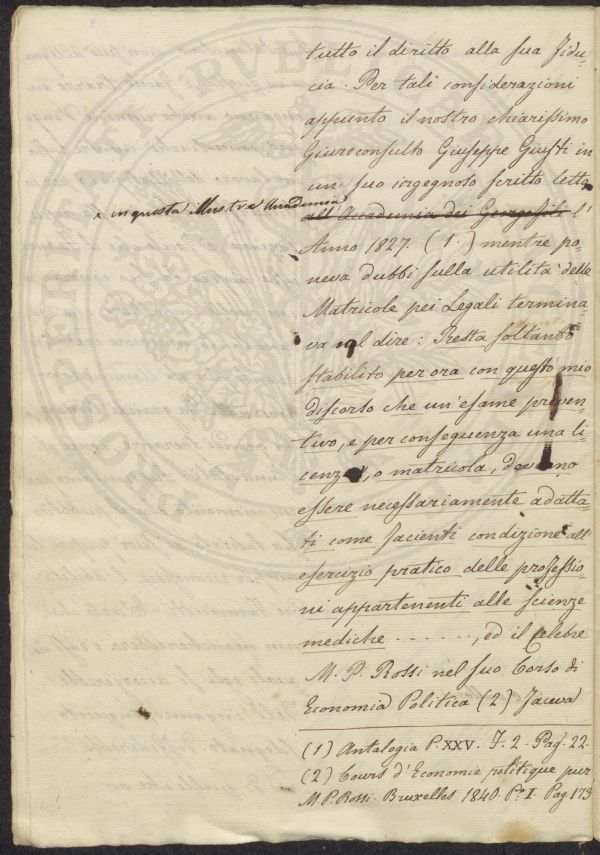 tutto il diritto alla sua fidu-
cia. Per tali considerazioni
appunto il nostro chiarissimo
Giureconsulto Giuseppe Giusti in
un suo ingegnoso scritto letto
× in questa Illustre Accademia
all'Accademia dei Georgofili l'
Anno 1827. (1.) mentre po-
neva dubbi sulla utilità delle
Matricole pei Legali termina-
va col dire: Resta soltanto
stabilito per ora con questo mio
discorso che un'esame preven-
tivo, e per conseguenza una li-
cenza, o matricola, devano
essere necessariamente adatta-
ti come facienti condizione all'
esercizio pratico delle professio-
ni appartenenti alle scienze
mediche . . . . . . , ed il celebre
M. P. Rossi nel suo Corso di
Economia Politica (2) faceva
(1) Antologia P. XXV. F. 2. Pag. 22.
(2) Cours d'Economie politique par
M. P. Rossi. Bruxelles 1840. P.e I. Pag. 173